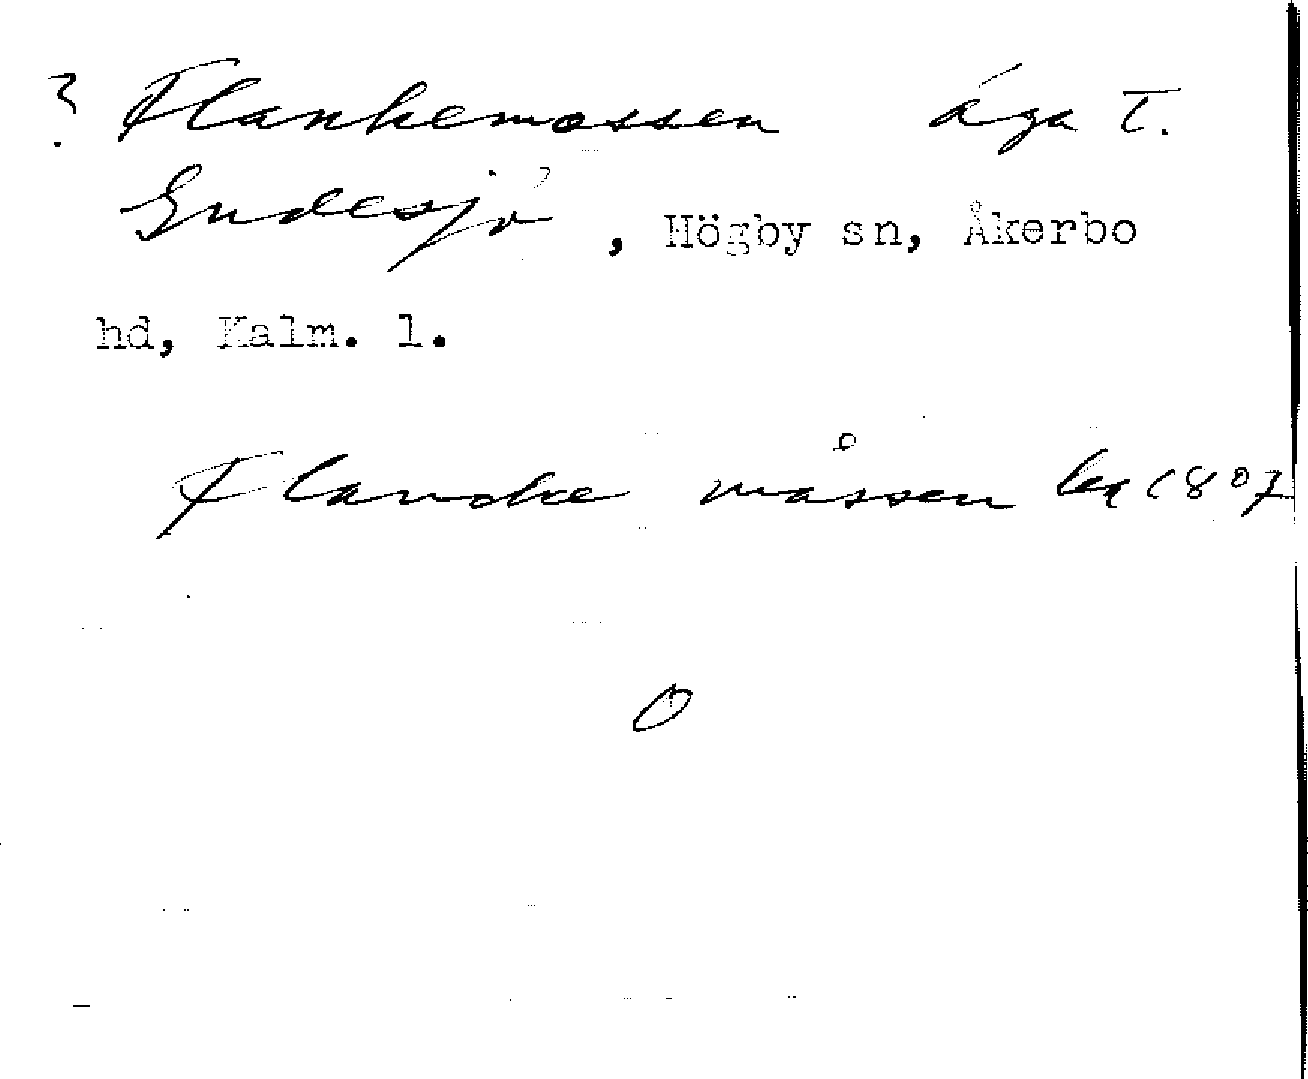 ? Flankemossen äga t.
Gudesjö, Högby sn, Åkerbo
hd, Kalm. l.
Flancke måssen lex 1807
O